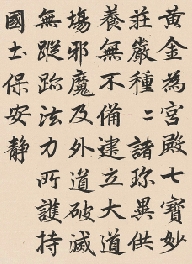 黃金為宮殿七寶妙
莊嚴種〻諸珎異供
養無不備建立大道
場邪魔及外道破滅
無蹤跡法力所護持
國土保安静